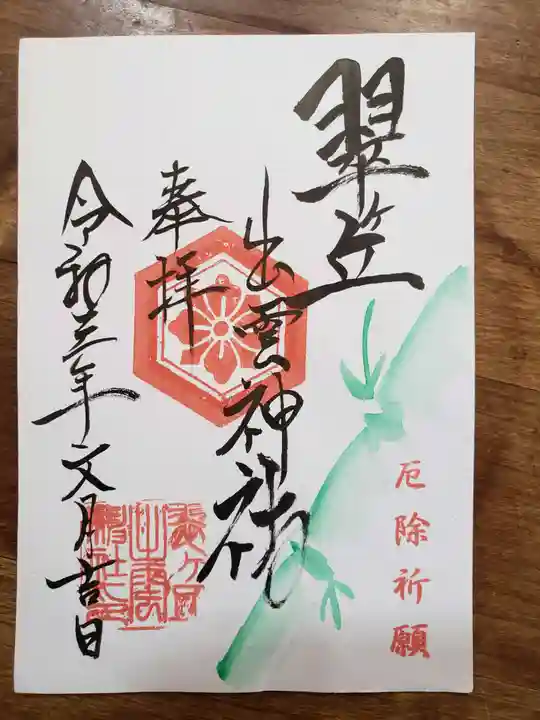 翠笠
出雲神社
奉拝
令和三年文月吉日
厄除祈願